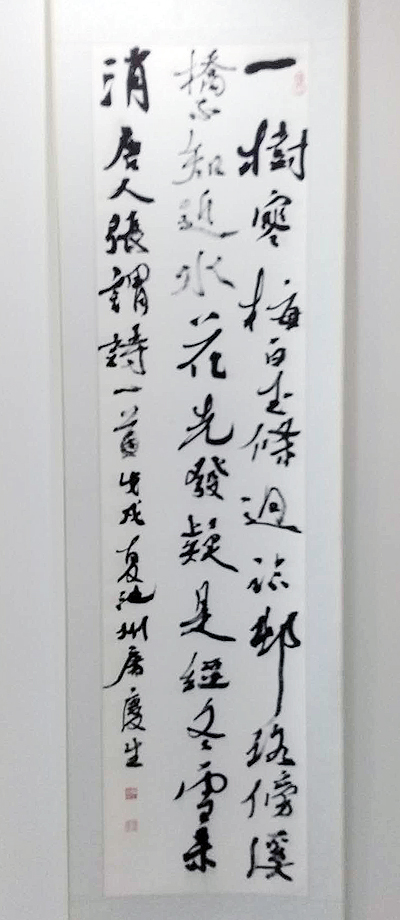 一樹寒梅白玉條迥臨邨路傍溪
橋不知近水花先發疑是經冬雪未
消唐人張謂詩一首戊戌夏池州慶生